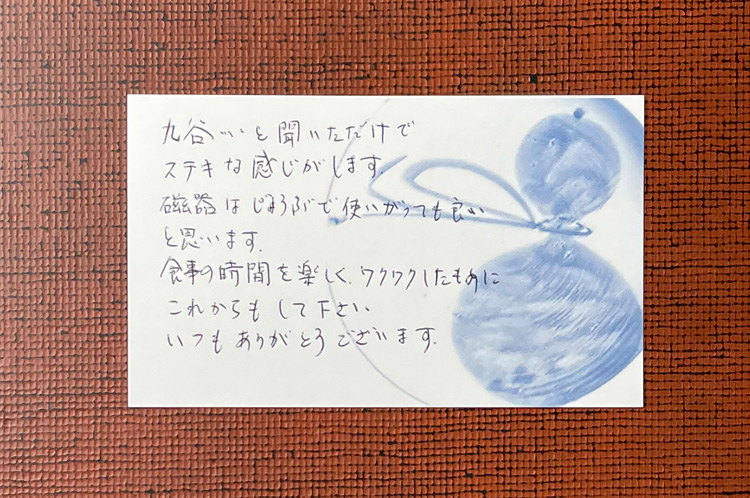 九谷…と聞いただけで
ステキな感じがします。
磁器はじょうぶで使いがっても良い
と思います。
食事の時間を楽しく、ワクワクしたものに
これからもして下さい
いつもありがとうございます。